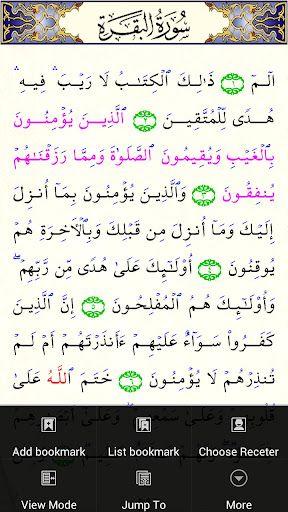 سُورَةُ الْبَقَرَةِ
الٓمٓ ۝١ ذَٰلِكَ ٱلْكِتَـٰبُ لَا رَيْبَ ۛ فِيهِ ۛ
هُدًى لِّلْمُتَّقِينَ ۝٢ ٱلَّذِينَ يُؤْمِنُونَ
بِٱلْغَيْبِ وَيُقِيمُونَ ٱلصَّلَوٰةَ وَمِمَّا رَزَقْنَـٰهُمْ
يُنفِقُونَ ۝٣ وَٱلَّذِينَ يُؤْمِنُونَ بِمَآ أُنزِلَ
إِلَيْكَ وَمَآ أُنزِلَ مِن قَبْلِكَ وَبِٱلْـَٔاخِرَةِ هُمْ
يُوقِنُونَ ۝٤ أُو۟لَـٰٓئِكَ عَلَىٰ هُدًى مِّن رَّبِّهِمْ ۖ
وَأُو۟لَـٰٓئِكَ هُمُ ٱلْمُفْلِحُونَ ۝٥ إِنَّ ٱلَّذِينَ
كَفَرُوا۟ سَوَآءٌ عَلَيْهِمْ ءَأَنذَرْتَهُمْ أَمْ لَمْ
تُنذِرْهُمْ لَا يُؤْمِنُونَ ۝٦ خَتَمَ ٱللَّهُ عَلَىٰ
قُلُوبِهِمْ وَعَلَىٰ سَمْعِهِمْ ۖ وَعَلَىٰٓ أَبْصَـٰرِهِمْ
Add bookmark List bookmark Choose Receter
View Mode Jump To More